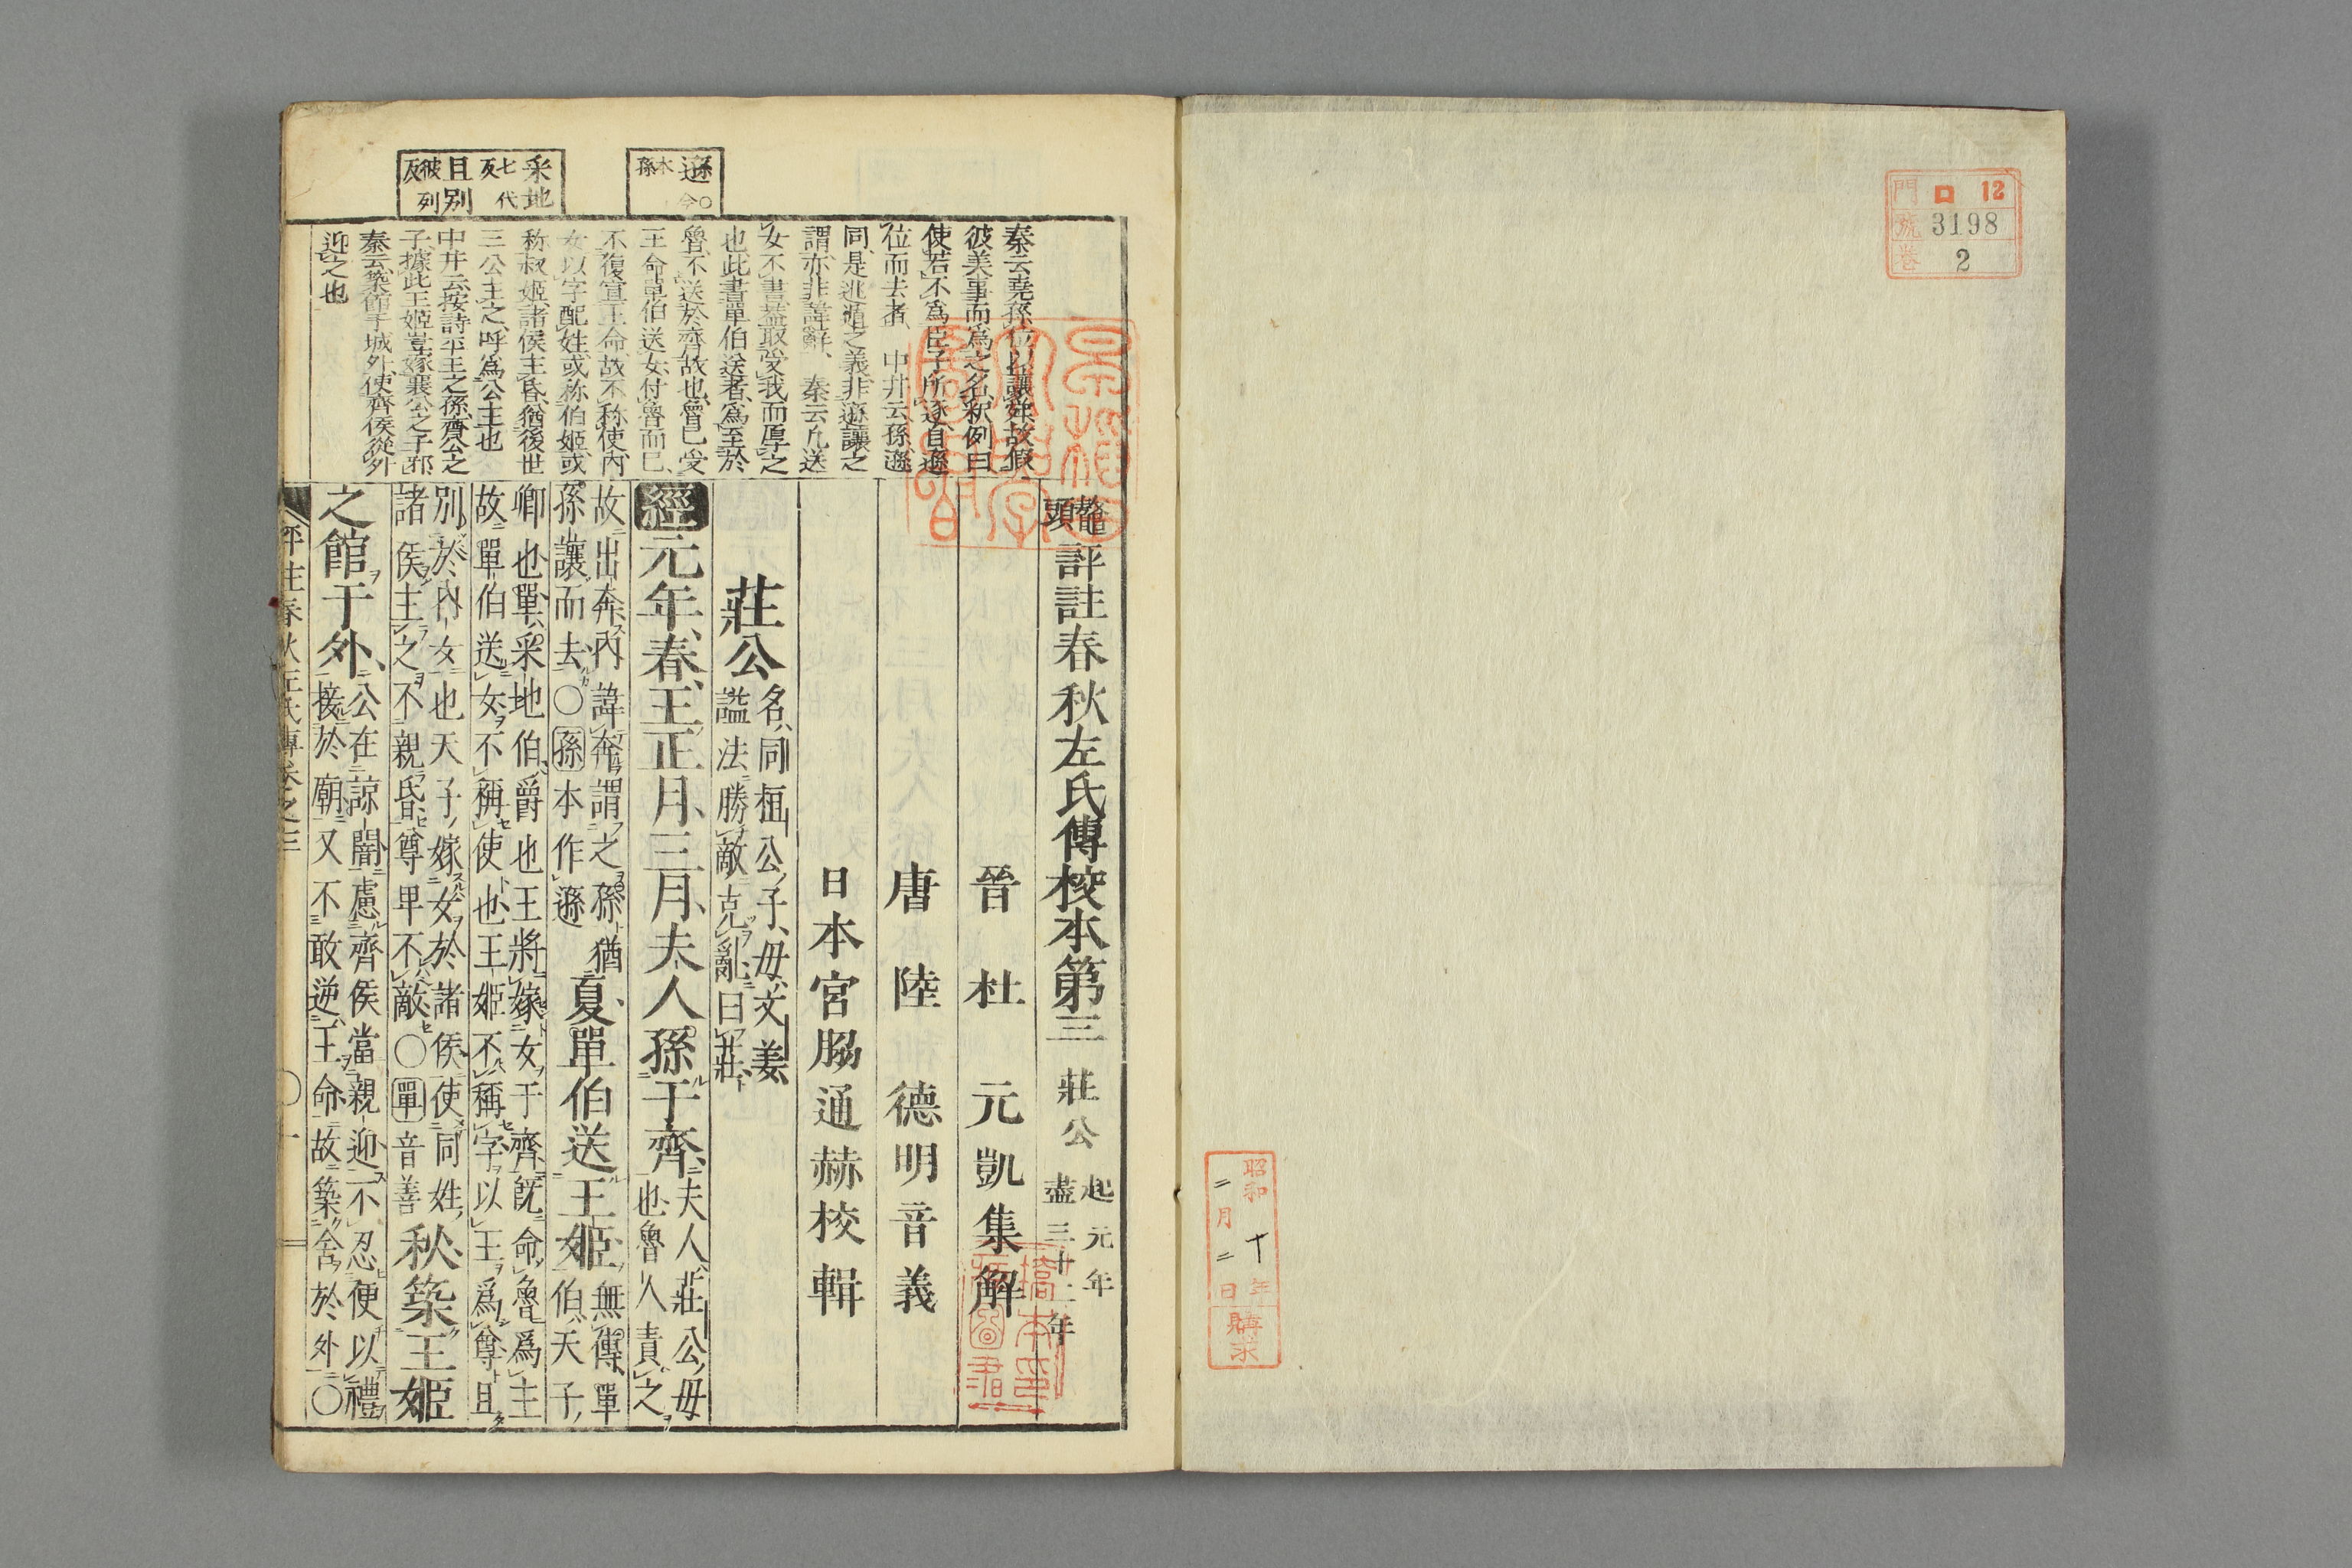 門 ロ 12
號 3198
巻 2
昭和十年
二月二日
購求
遜 ○今本孫
采地 七代反
且別 彼列反
秦云堯孫位以讓舜故假
彼美事而爲之名釈例曰
使若不爲臣子所逐自遜
位而去者、中井云孫遜
同是逃遁之義非遜讓之
謂亦非諱辭、秦云凡送
女不書蓋取受我而厚之
也此書單伯送者爲至於
魯不送於齊故也魯已受
王命單伯送女付魯而已
不復宣王命故不称使内
女以字配姓或称伯姬或
称叔姬諸侯主昏猶後世
三公主之呼爲公主也
中井云按詩平王之孫齊公之
子據此王姬豈嫁襄公之子邪
秦云築館于城外使齊侯從外
迎之也
鼇頭評註春秋左氏傳校本第三 莊公 起元年盡三十二年
晉 杜 元凱集解
唐 陸 德明音義
日本宮脇通赫校輯
莊公 名同桓公子母文姜謚法勝敵克亂曰莊
經元年春王正月三月夫人孫于齊 夫人莊公母也魯人責之
故出奔内諱奔謂之孫猶孫讓而去○孫本作遜 夏單伯送王姬 無傳單伯天子
卿也單采地伯爵也王將嫁女于齊既命魯爲主故單伯送女不稱使也王姬不稱字以王爲尊且
別於内女也天子嫁女於諸侯使同姓諸侯主之不親昏尊卑不敵○單音善 秋築王姬
之館于外 公在諒闇慮齊侯當親迎不忍便以禮接於廟又不敢逆王命故築舍於外○
評註春秋左氏傳卷之三 ○一